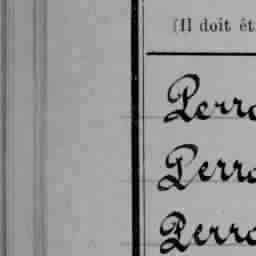 (Il doit êt
Perro
Perro
Perro